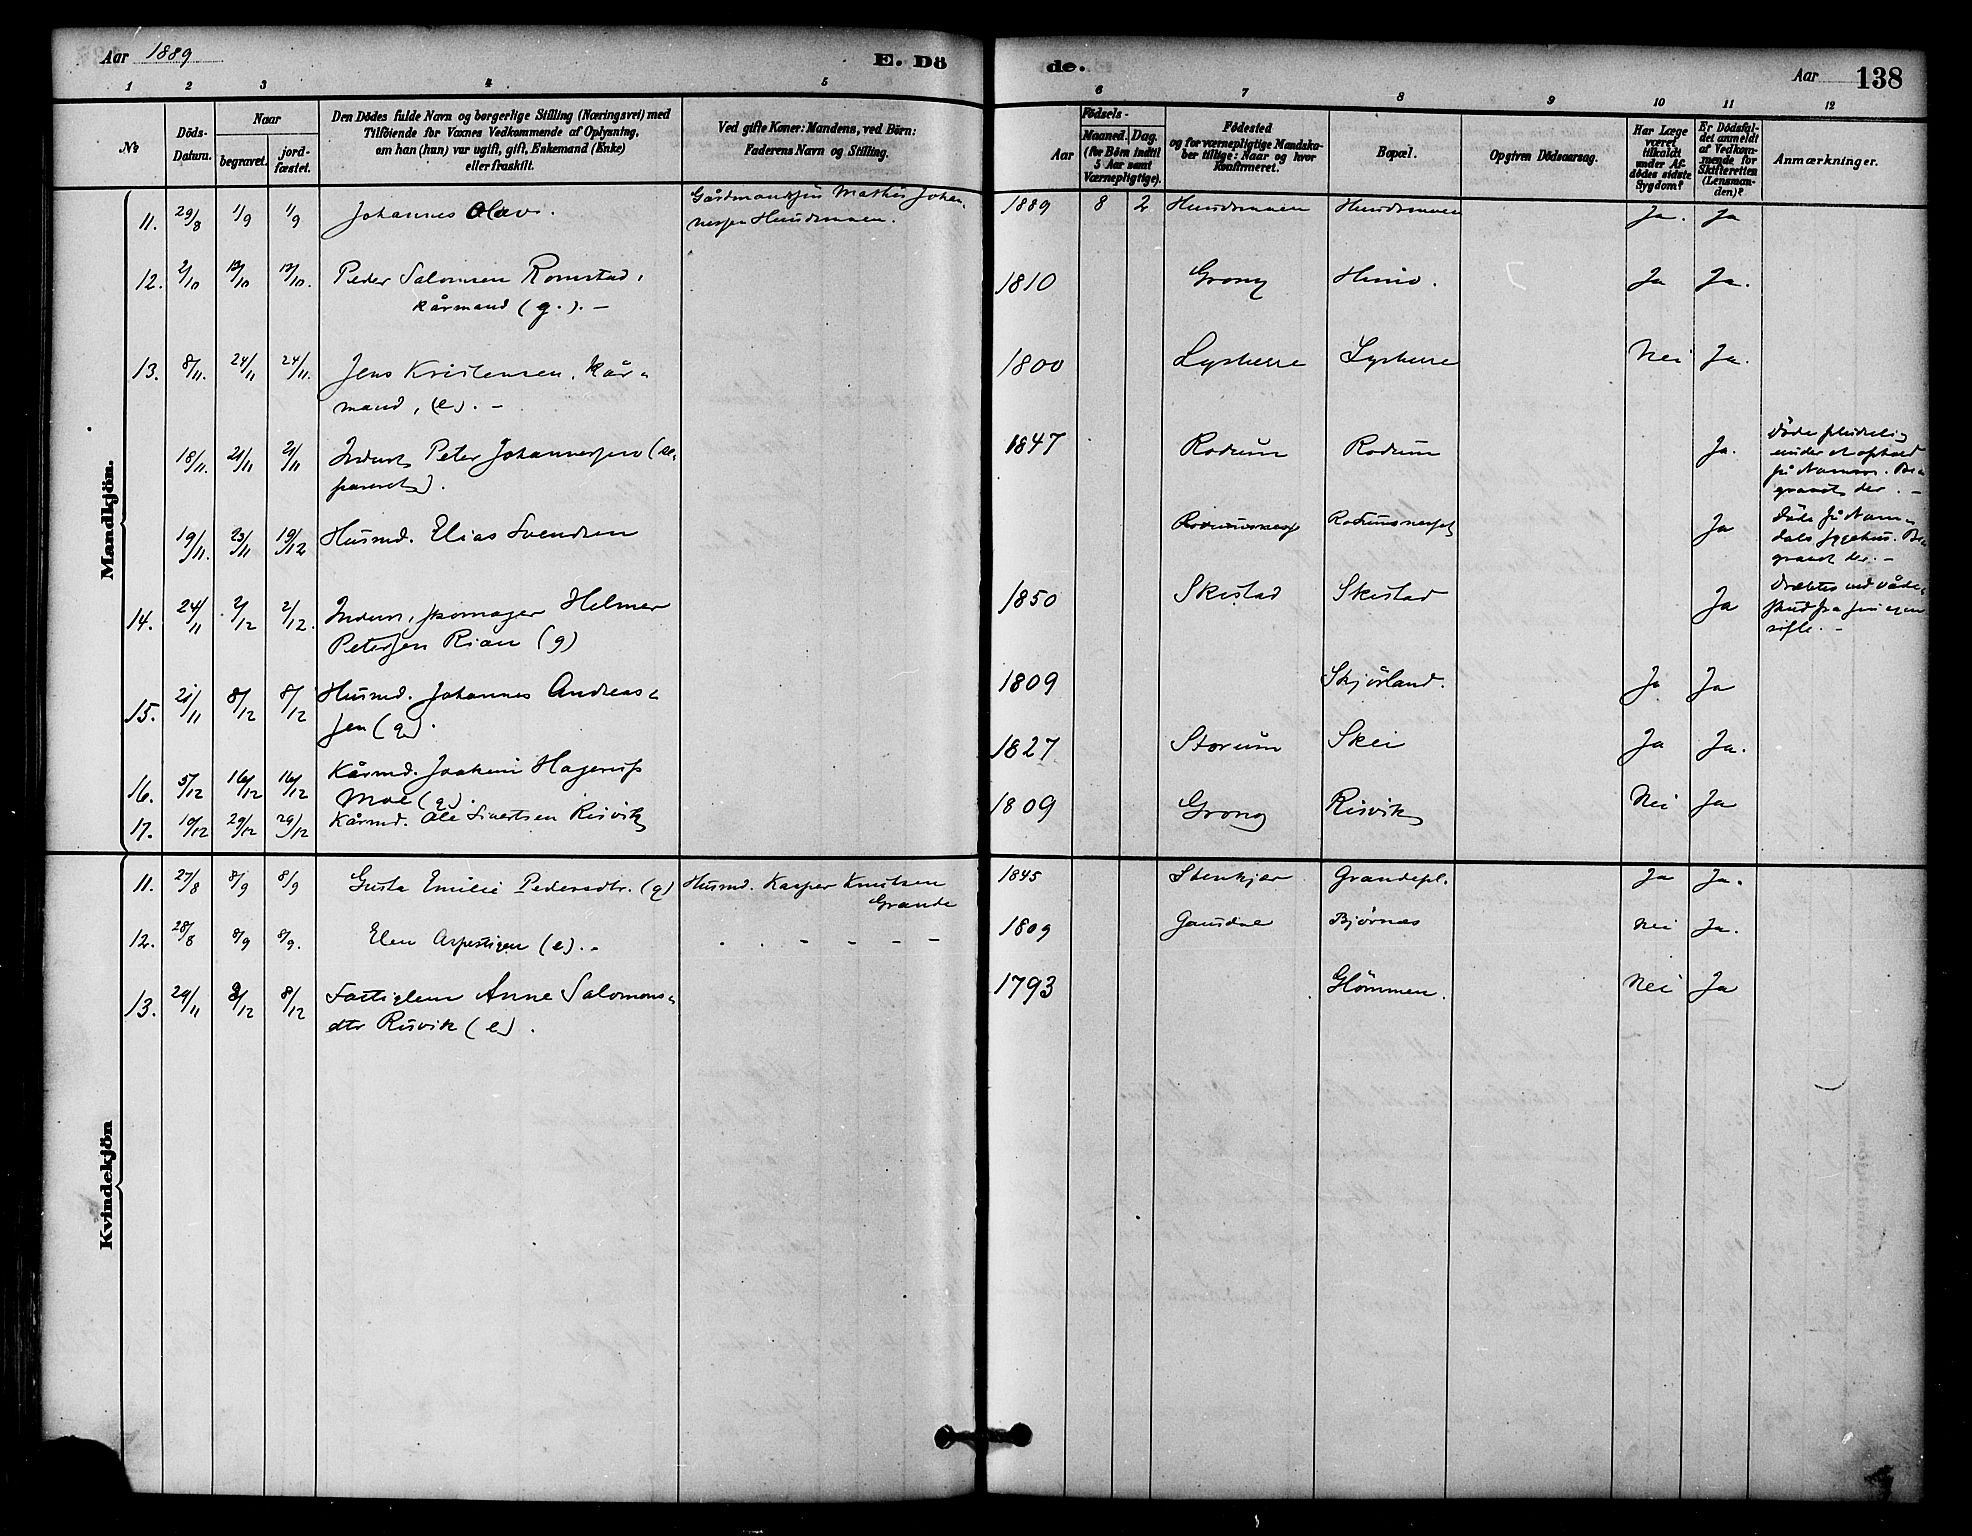 Aar 1889
E. Dö
de.
Aar 138
1 2 3 4 5
6 7 8 9 10 11 12
№
Döds-
Datum.
Naar
begravet.
jord-
fæstet.
Den Dödes fulde Navn og borgerlige Stilling (Næringsvei) med
Tilföiende for Voxnes Vedkommende af Oplysning,
om han (hun) var ugift, gift, Enkemand (Enke)
eller fraskilt.
Ved gifte Koner: Mandens, ved Börn:
Faderens Navn og Stilling.
Födsels-
Aar
Maaned. Dag.
(for Börn indtil
5 Aar samt
Værnepligtige).
Födested
og for værnepligtige Mandska-
ber tillige: Naar og hvor
Konfirmeret.
Bopæl.
Opgiven Dödsaarsag.
Har Læge
været
tilkaldt
under Af-
dödes sidste
Sygdom?
Er Dödsfal-
det anmeldt
af Vedkom-
mende for
Skifteretten
(Lensman-
den)?
Anmærkninger.
Mandkjön.
11. 29/8 1/9 1/9 Johannes Olav. Gårdmandsjen Mathis Johan-
nesjen Hundsmoen. 1889 8 2 Hundsmoen Hundsmoen Ja. Ja
12. 2/10 13/10 13/10. Peder Salomsen Romstad, 1810 Grong Ja Ja.
kårmand (g.). —
13. 8/11. 24/11 24/11. Jens Kristensen, kår- 1800 Nei Ja.
mand, (e). —
18/11. 21/11 21/11 Inderst Peter Johannesjen (se- 1847 Rodum Rodum Ja. Döde pludselig
pareret). under et ophold
på Namsos. Be-
gravet der. —
19/11. 23/11 19/12 Husmd. Elias Svendsen Rodumsnesset Rodumsnesset Ja Döde på Nam-
dals sygehus. Be-
gravet der. —
14. 24/11 2/12 2/12. Inders, skomager Helmer 1850 Skistad Skistad Ja Dræbtes ved våde-
Petersen Rian (g) skud fra sin egen
rifle. —
15. 21/11 8/12 8/12 Husmd. Johannes Andreas- 1809 Skjörland. Ja Ja
jen (g).
16. 5/12 16/12 16/12 Kårmd. Joakim Hagerup 1827 Storum Skei Ja Ja.
Moe (g).
17. 10/12 29/12 29/12 Kårmd. Ole Sivertsen Risvik 1809 Grong Risvik Nei Ja
Kvindekjön
11. 27/8 8/9 8/9 Gusta Emilie Pedersdtr. (g) Husmd. Kasper Knutsen
Grande 1845 Stenkjær Grandepl. Ja Ja.
12. 28/8 8/9 8/9. Elen Aspestigen (e). — 1809 Gausdal Bjørnes Nei Ja.
13. 29/11 8/12 8/12 Fattiglem Anne Salomons- 1793 Glömmen. Nei Ja
dtr Risvik (e).